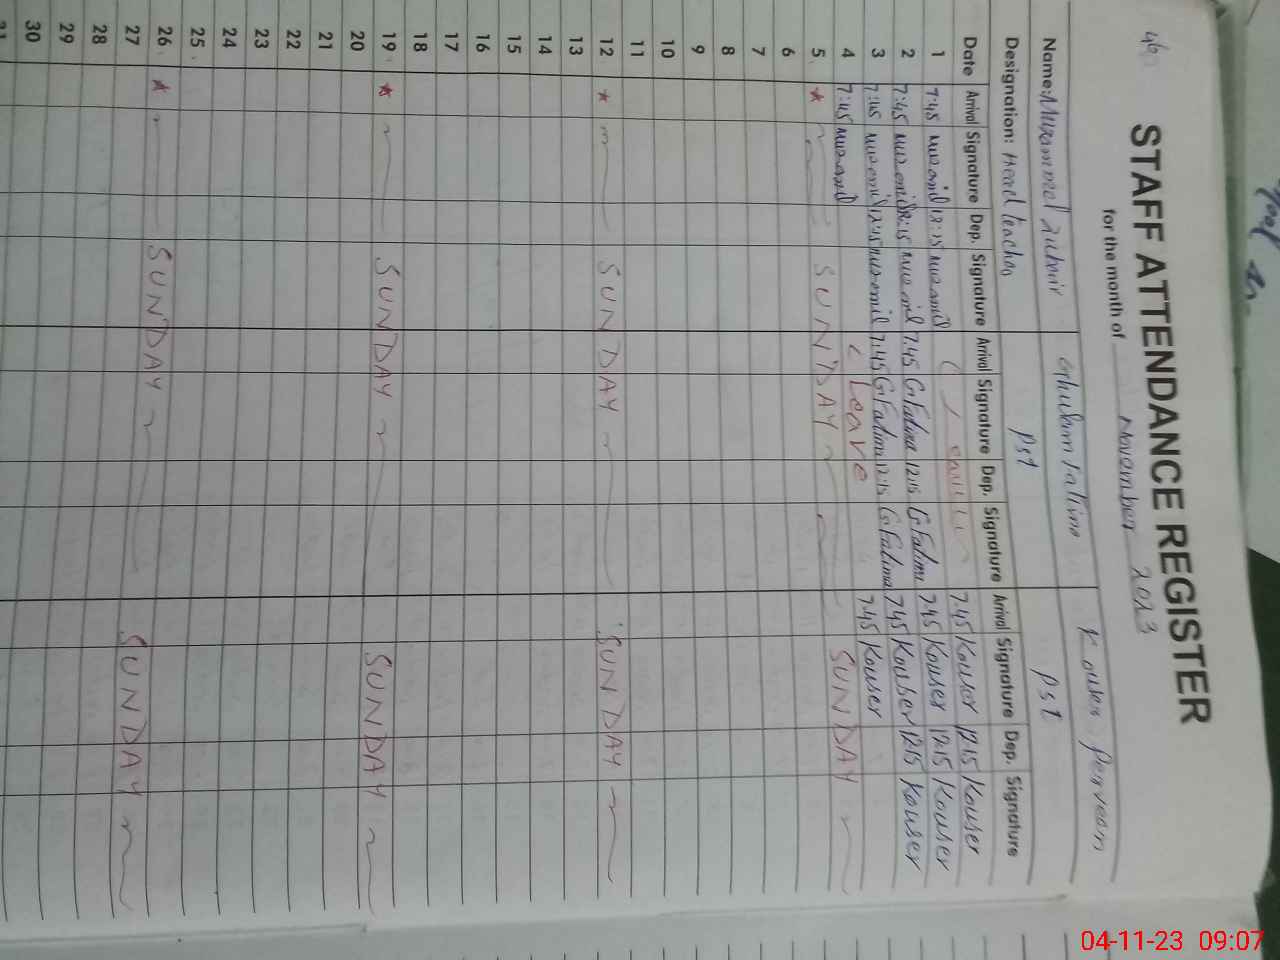 STAFF ATTENDANCE REGISTER
for the month of November 2023
Name: Muzammal Zubair Ghulam Fatima Kouser Parveen
Designation: Head teacher Pst Pst
Date Arrival Signature Dep. Signature Arrival Signature Dep. Signature Arrival Signature Dep. Signature
1 7:45 12:15 7:45 Kouser 12:15 Kouser
2 7:45 12:15 7:45 G.Fatima 12:15 G.Fatima 7:45 Kouser 12:15 Kouser
3 7:45 12:45 7:45 G.Fatima 12:15 G.Fatima 7:45 Kouser 12:15 Kouser
4 7:45 Leave 7:45 Kouser
5 SUNDAY SUNDAY
6
7
8
9
10
11
12 SUNDAY SUNDAY
13
14
15
16
17
18
19 SUNDAY SUNDAY
20
21
22
23
24
25
26 SUNDAY SUNDAY
27
28
29
30
31
04-11-23 09:07